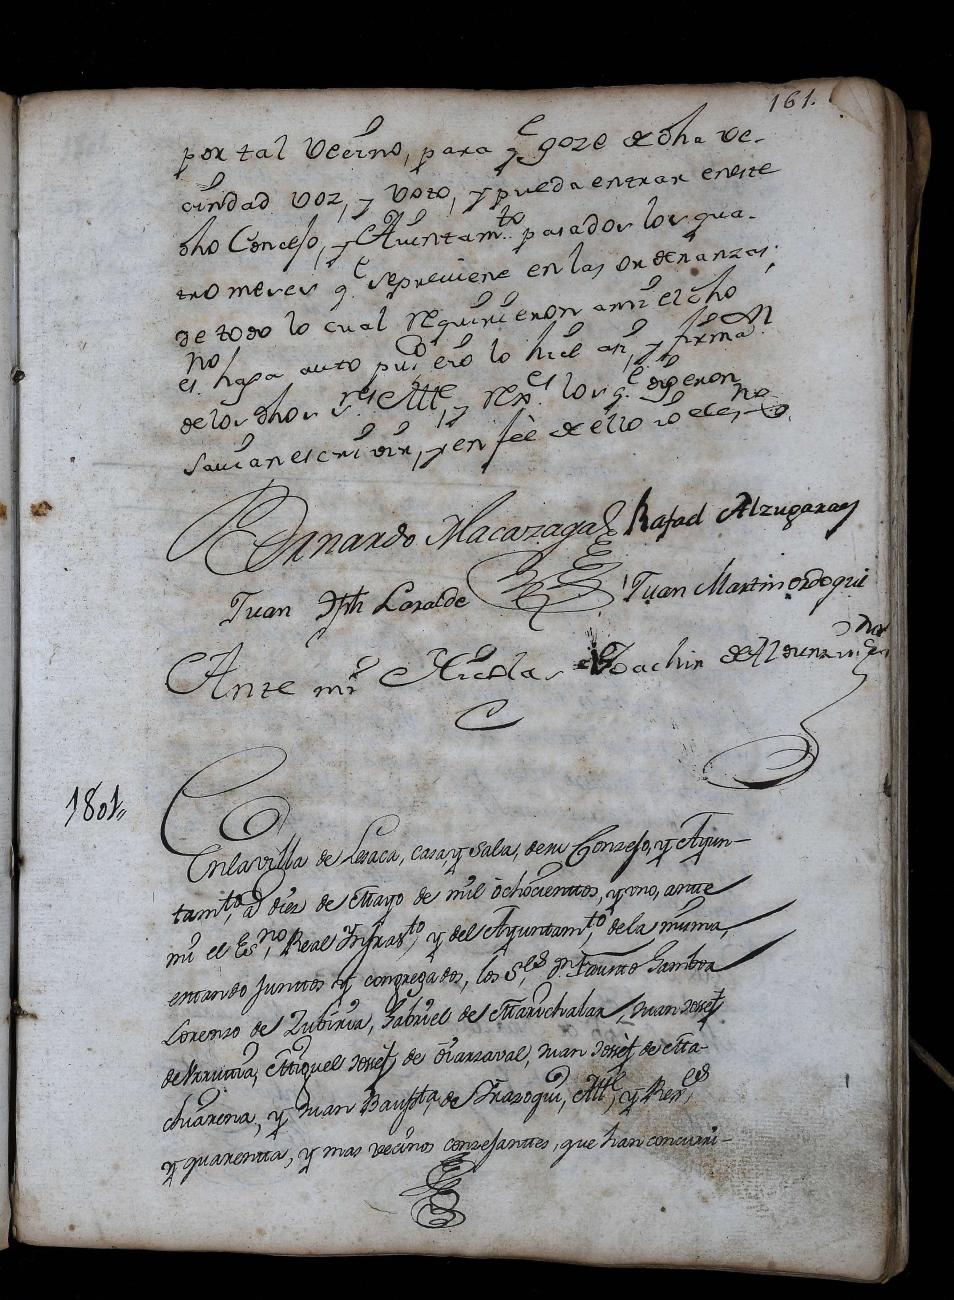 161.
por tal Vecino, para q.e goze de dha ve-
cindad voz, y voto, y pueda entrar eneste
dho Concejo, y Aiuntam.to pasados los qua-
tro meses q.e sepreviene en las ordenanzas;
de todo lo cual requirieron ami el dho
es.no haga auto pu.co e io lo hice asi, y firma.on
delos dhos s.res Alc.e, y Rex.es los q.e digeron
savian escrivir, y en feè de ello io el es.no
Bernardo Macazaga Rafael Alzugaray
Juan Jph Laralde Juan Martin ordoqui
Ante mi Nicolas Joachin de Aldunzin es.no
1801,,
Enla villa de Lesaca, casa, y sala, de su Conzejo, y Ayun-
tam.to, à diez de Mayo de mil ochocientos, y uno, ante
mi el Es.no Real Infras.to y del Ayuntam.to de la misma,
estando juntos y congregados, los S.res D.n Fausto Gamboa
Lorenzo de Zubiria, Gabriel de Marichalar, Juan Josef
de Yrrutia, Miguel Josef de oiarzaval, Juan Josef de Ma-
chiarena, y Juan Baup.ta de Trazoqui, Alc.e y Rex.res
y quarenta, y mas vecinos conzejantes, que han concurri-